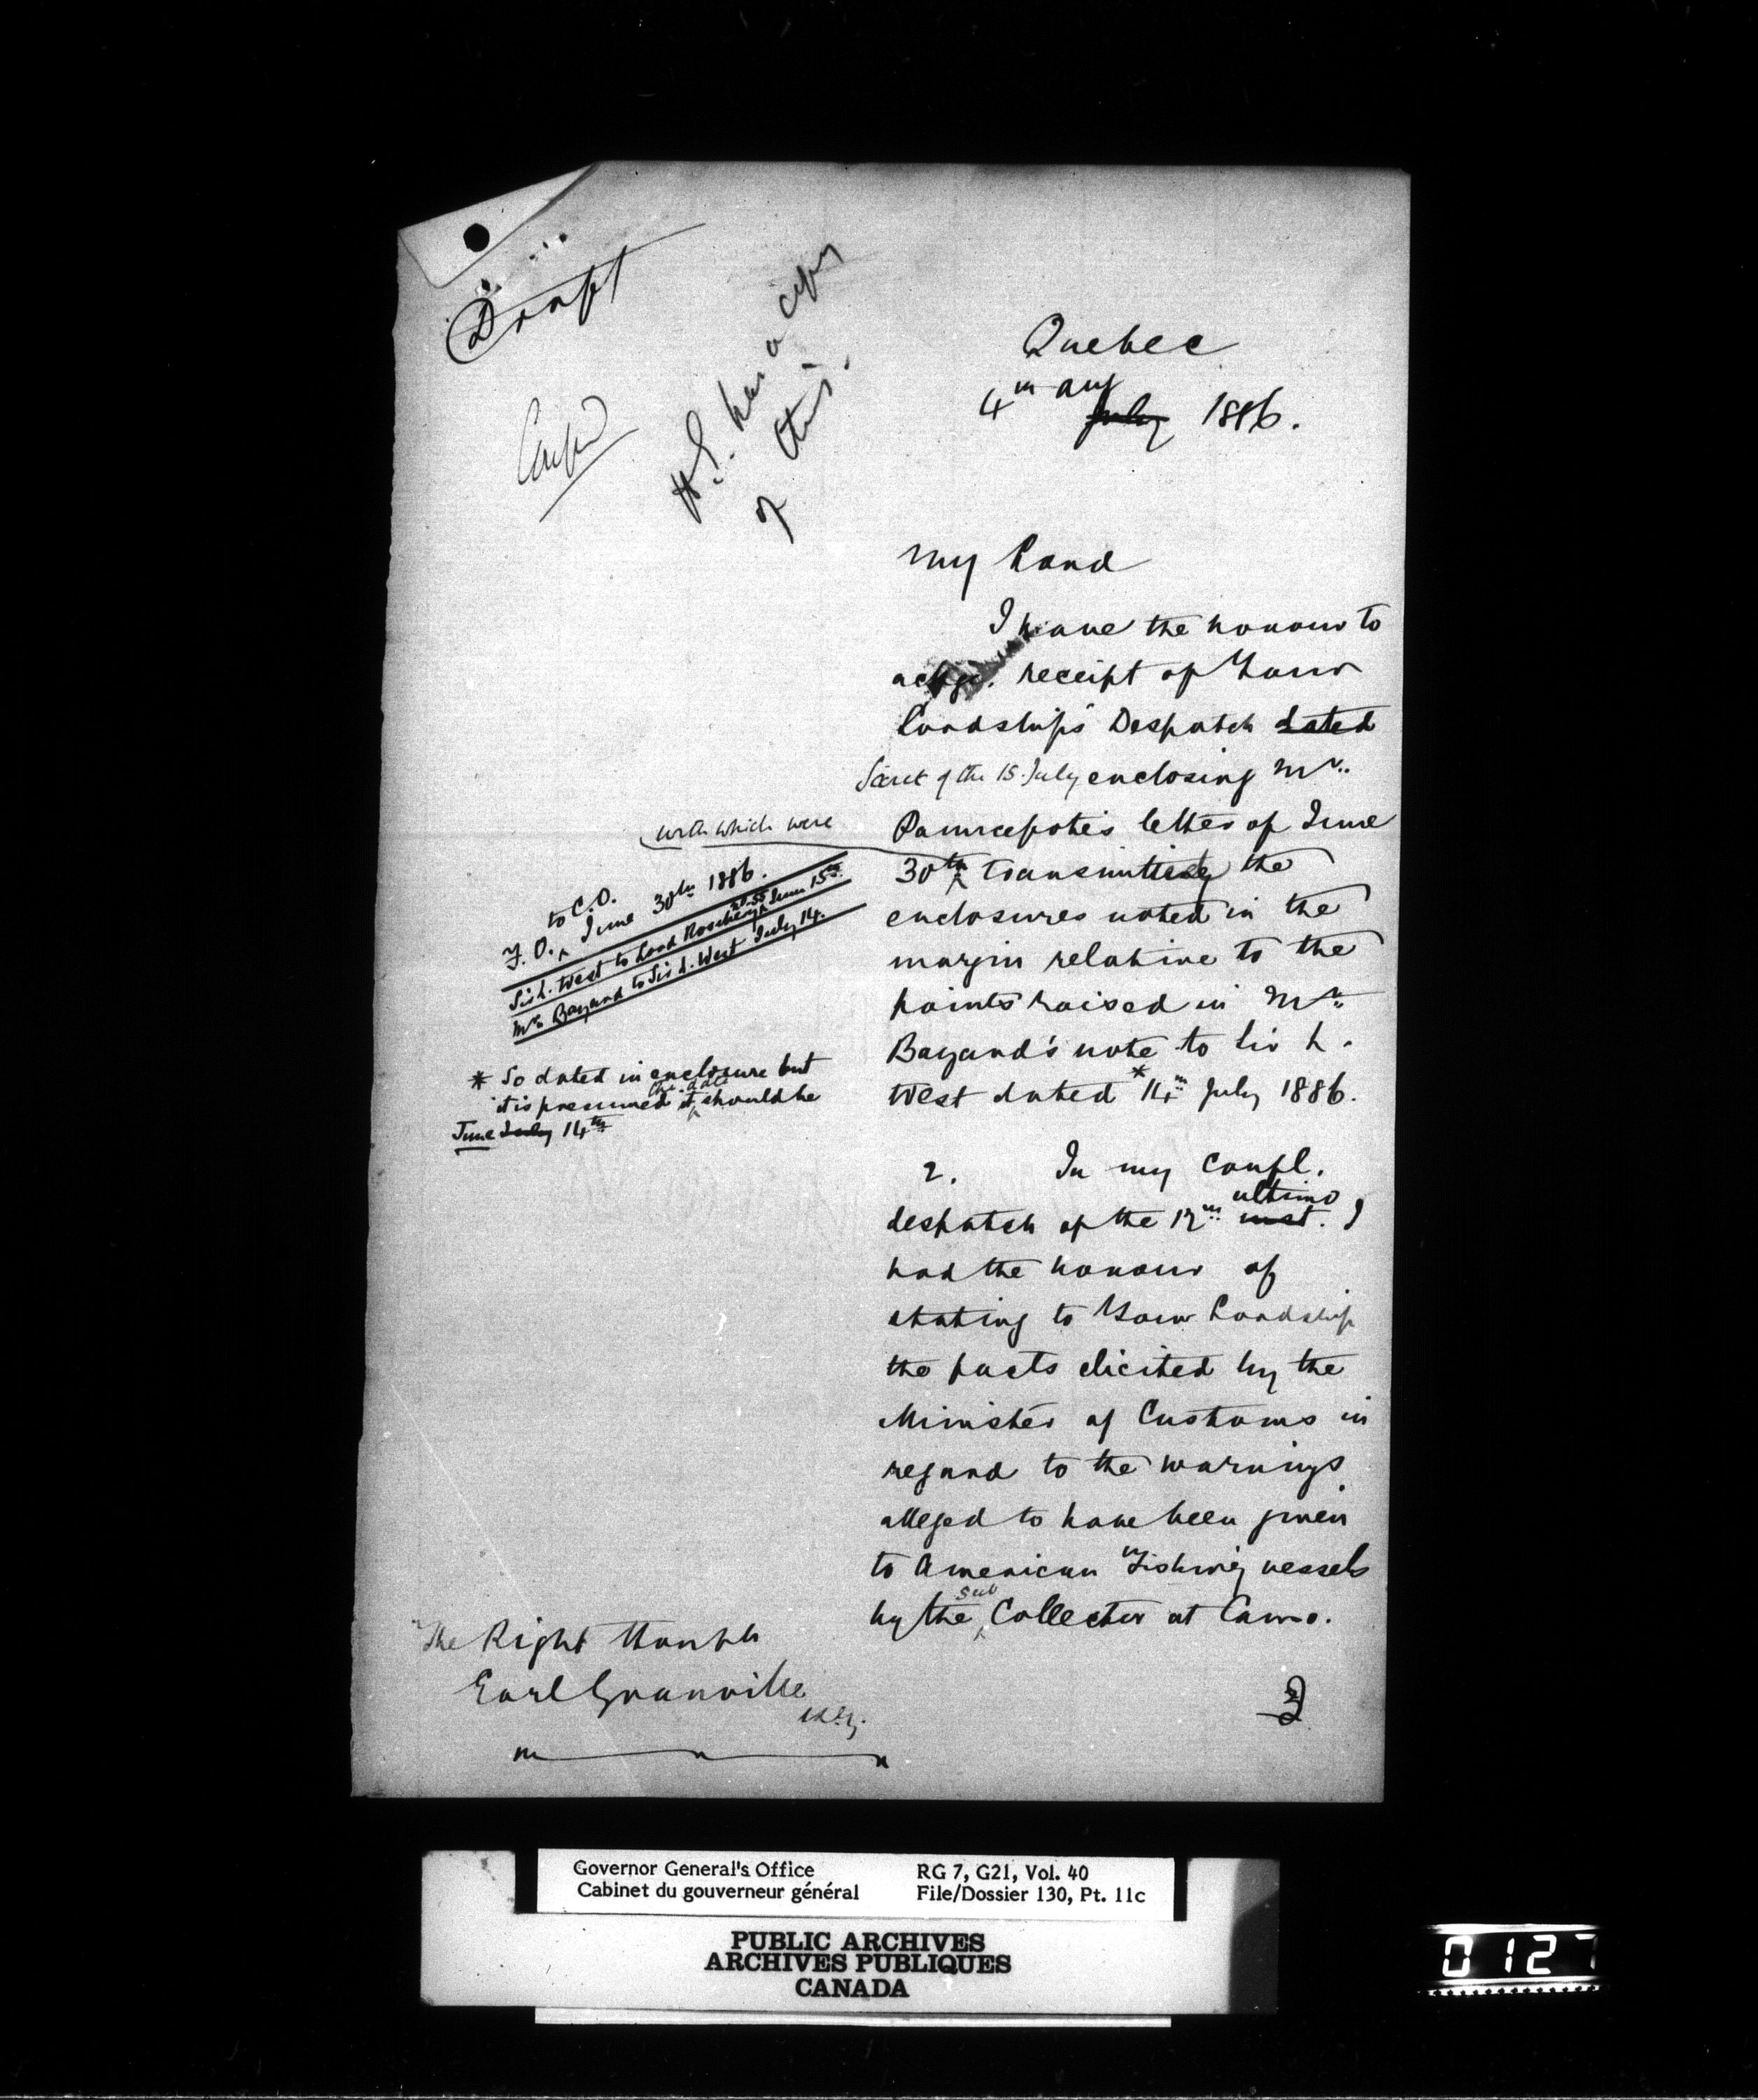 Draft
H.E. has a copy
of this.
Quebec
4th Aug
July 1886.
My Lord
I have the honour to
ackge. receipt of Your
Lordship's Despatch dated
Secret of the 15 July enclosing Mr.
Pauncefote's letter of June
with which were
30th transmitted the
enclosures noted in the
margin relative to the
points raised in Mr.
Bayard's note to Sir L.
West dated *14th July 1886.
F.O. to C.O. June 30th 1886.
Sir L. West to Lord Rosebery June 15th.
Mr. Bayard to Sir L. West July 14.
* So dated in enclosure but
it is presumed it the date should be
June July 14th
2. In my Confl.
despatch of the 12th inst. ultimo I
had the honour of
stating to Your Lordship
the facts elicited by the
Minister of Customs in
regard to the warnings
alleged to have been given
to American Fishing vessels
by the Sub Collector at Canso.
The Right Honble
Earl Granville
K.G.
3
Governor General's Office
Cabinet du gouverneur général
RG 7, G21, Vol. 40
File/Dossier 130, Pt. 11c
PUBLIC ARCHIVES
ARCHIVES PUBLIQUES
CANADA
0127